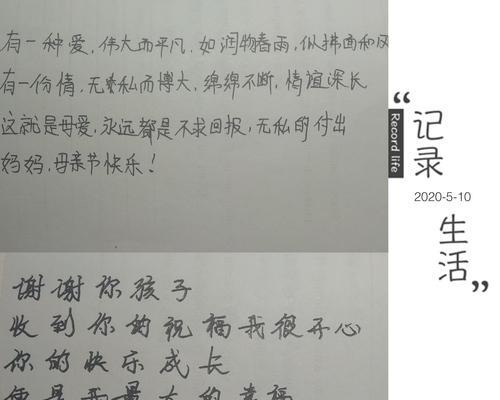 有一种爱，伟大而平凡，如润物春雨，似拂面和风
有一份情，无私而博大，绵绵不断，情谊深长
这就是母爱，永远都是不求回报，无私的付出
妈妈，母亲节快乐！
谢谢你孩子
收到你的祝福我很开心
你的快乐成长
便是我最大的幸福
“记录
Record life
2020-5-10
生活”